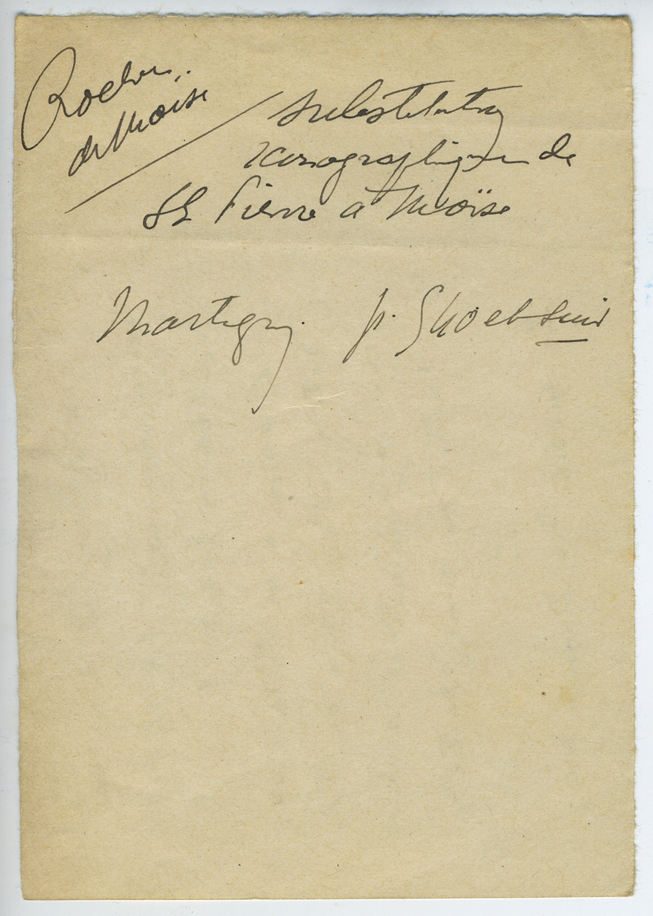 Rocher
de Moïse
substitution
iconographique de
St Pierre à Moïse
Martigny p. et suiv